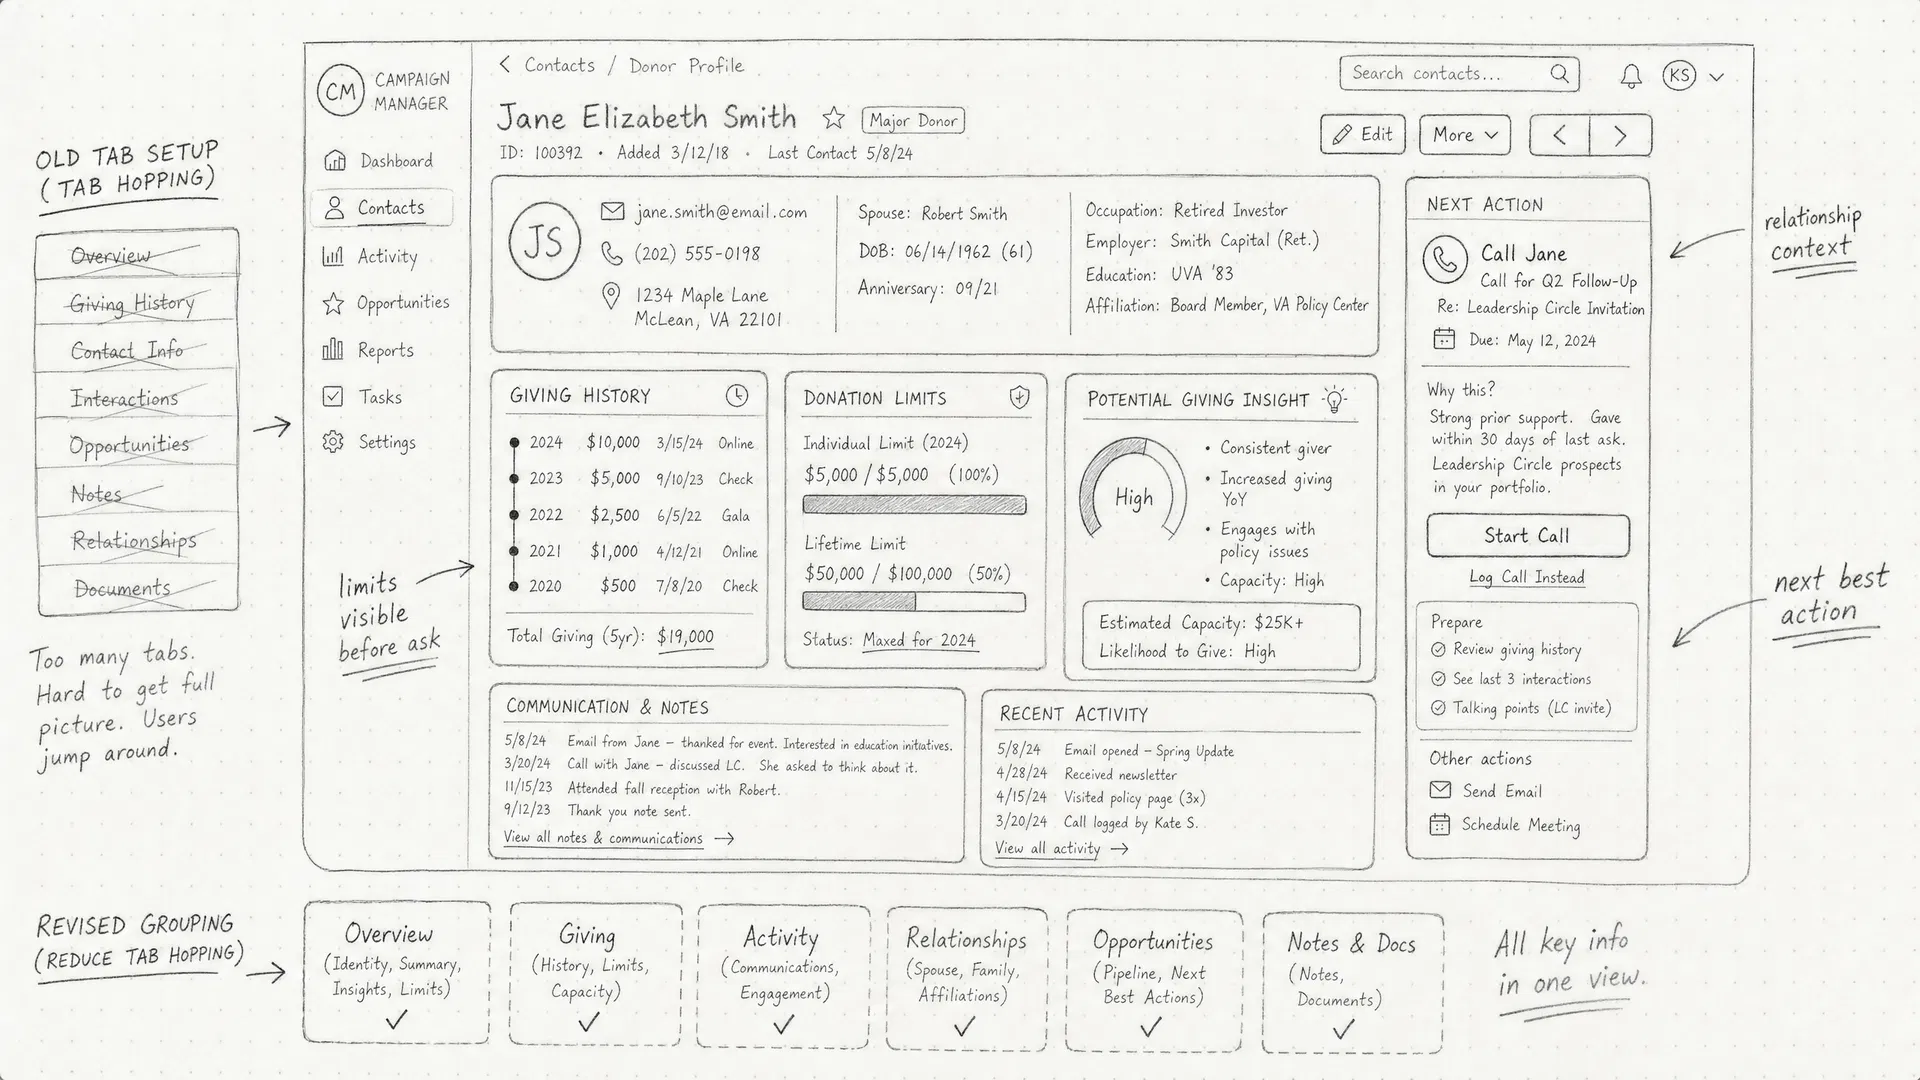 OLD TAB SETUP
(TAB HOPPING)
Overview
Giving History
Contact Info
Interactions
Opportunities
Notes
Relationships
Documents
Too many tabs.
Hard to get full
picture. Users
jump around.
CM
CAMPAIGN
MANAGER
Dashboard
Contacts
Activity
Opportunities
Reports
Tasks
Settings
limits
visible
before ask
Contacts / Donor Profile
Search contacts...
KS
Jane Elizabeth Smith
Major Donor
ID: 100392 • Added 3/12/18 • Last Contact 5/8/24
Edit
More
JS
jane.smith@email.com
(202) 555-0198
1234 Maple Lane
McLean, VA 22101
Spouse: Robert Smith
DoB: 06/14/1962 (61)
Anniversary: 09/21
Occupation: Retired Investor
Employer: Smith Capital (Ret.)
Education: UVA '83
Affiliation: Board Member, VA Policy Center
GIVING HISTORY
2024 $10,000 3/15/24 Online
2023 $5,000 9/10/23 Check
2022 $2,500 6/5/22 Gala
2021 $1,000 4/12/21 Online
2020 $500 7/8/20 Check
Total Giving (5yr): $19,000
DONATION LIMITS
Individual Limit (2024)
$5,000 / $5,000 (100%)
Lifetime Limit
$50,000 / $100,000 (50%)
Status: Maxed for 2024
POTENTIAL GIVING INSIGHT
High
• Consistent giver
• Increased giving
YoY
• Engages with
policy issues
• Capacity: High
Estimated Capacity: $25K+
Likelihood to Give: High
COMMUNICATION & NOTES
5/8/24 Email from Jane – thanked for event. Interested in education initiatives.
3/20/24 Call with Jane – discussed LC. She asked to think about it.
11/15/23 Attended fall reception with Robert.
9/12/23 Thank you note sent.
View all notes & communications →
RECENT ACTIVITY
5/8/24 Email opened – Spring Update
4/28/24 Received newsletter
4/15/24 Visited policy page (3x)
3/20/24 Call logged by Kate S.
View all activity →
NEXT ACTION
Call Jane
Call for Q2 Follow-Up
Re: Leadership Circle Invitation
Due: May 12, 2024
Why this?
Strong prior support. Gave
within 30 days of last ask.
Leadership Circle prospects
in your portfolio.
Start Call
Log Call Instead
Prepare
Review giving history
See last 3 interactions
Talking points (LC invite)
Other actions
Send Email
Schedule Meeting
relationship
context
next best
action
REVISED GROUPING
(REDUCE TAB HOPPING)
Overview
(Identity, Summary,
Insights, Limits)
Giving
(History, Limits,
Capacity)
Activity
(Communications,
Engagement)
Relationships
(Spouse, Family,
Affiliations)
Opportunities
(Pipeline, Next
Best Actions)
Notes & Docs
(Notes,
Documents)
All key info
in one view.